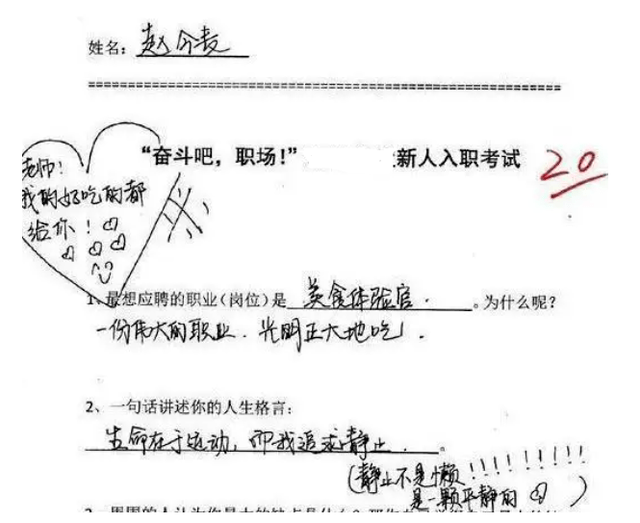 姓名：赵今麦
“奋斗吧，职场！” 新人入职考试
20
老师！
我的好吃的都
给你！
1、最想应聘的职业（岗位）是 美食体验官 。为什么呢？
一份伟大的职业．光明正大地吃！
2、一句话讲述你的人生格言：
生命在于运动，而我追求静止．。
（静止不是懒！！！！！！！！
是一颗平静的 ）